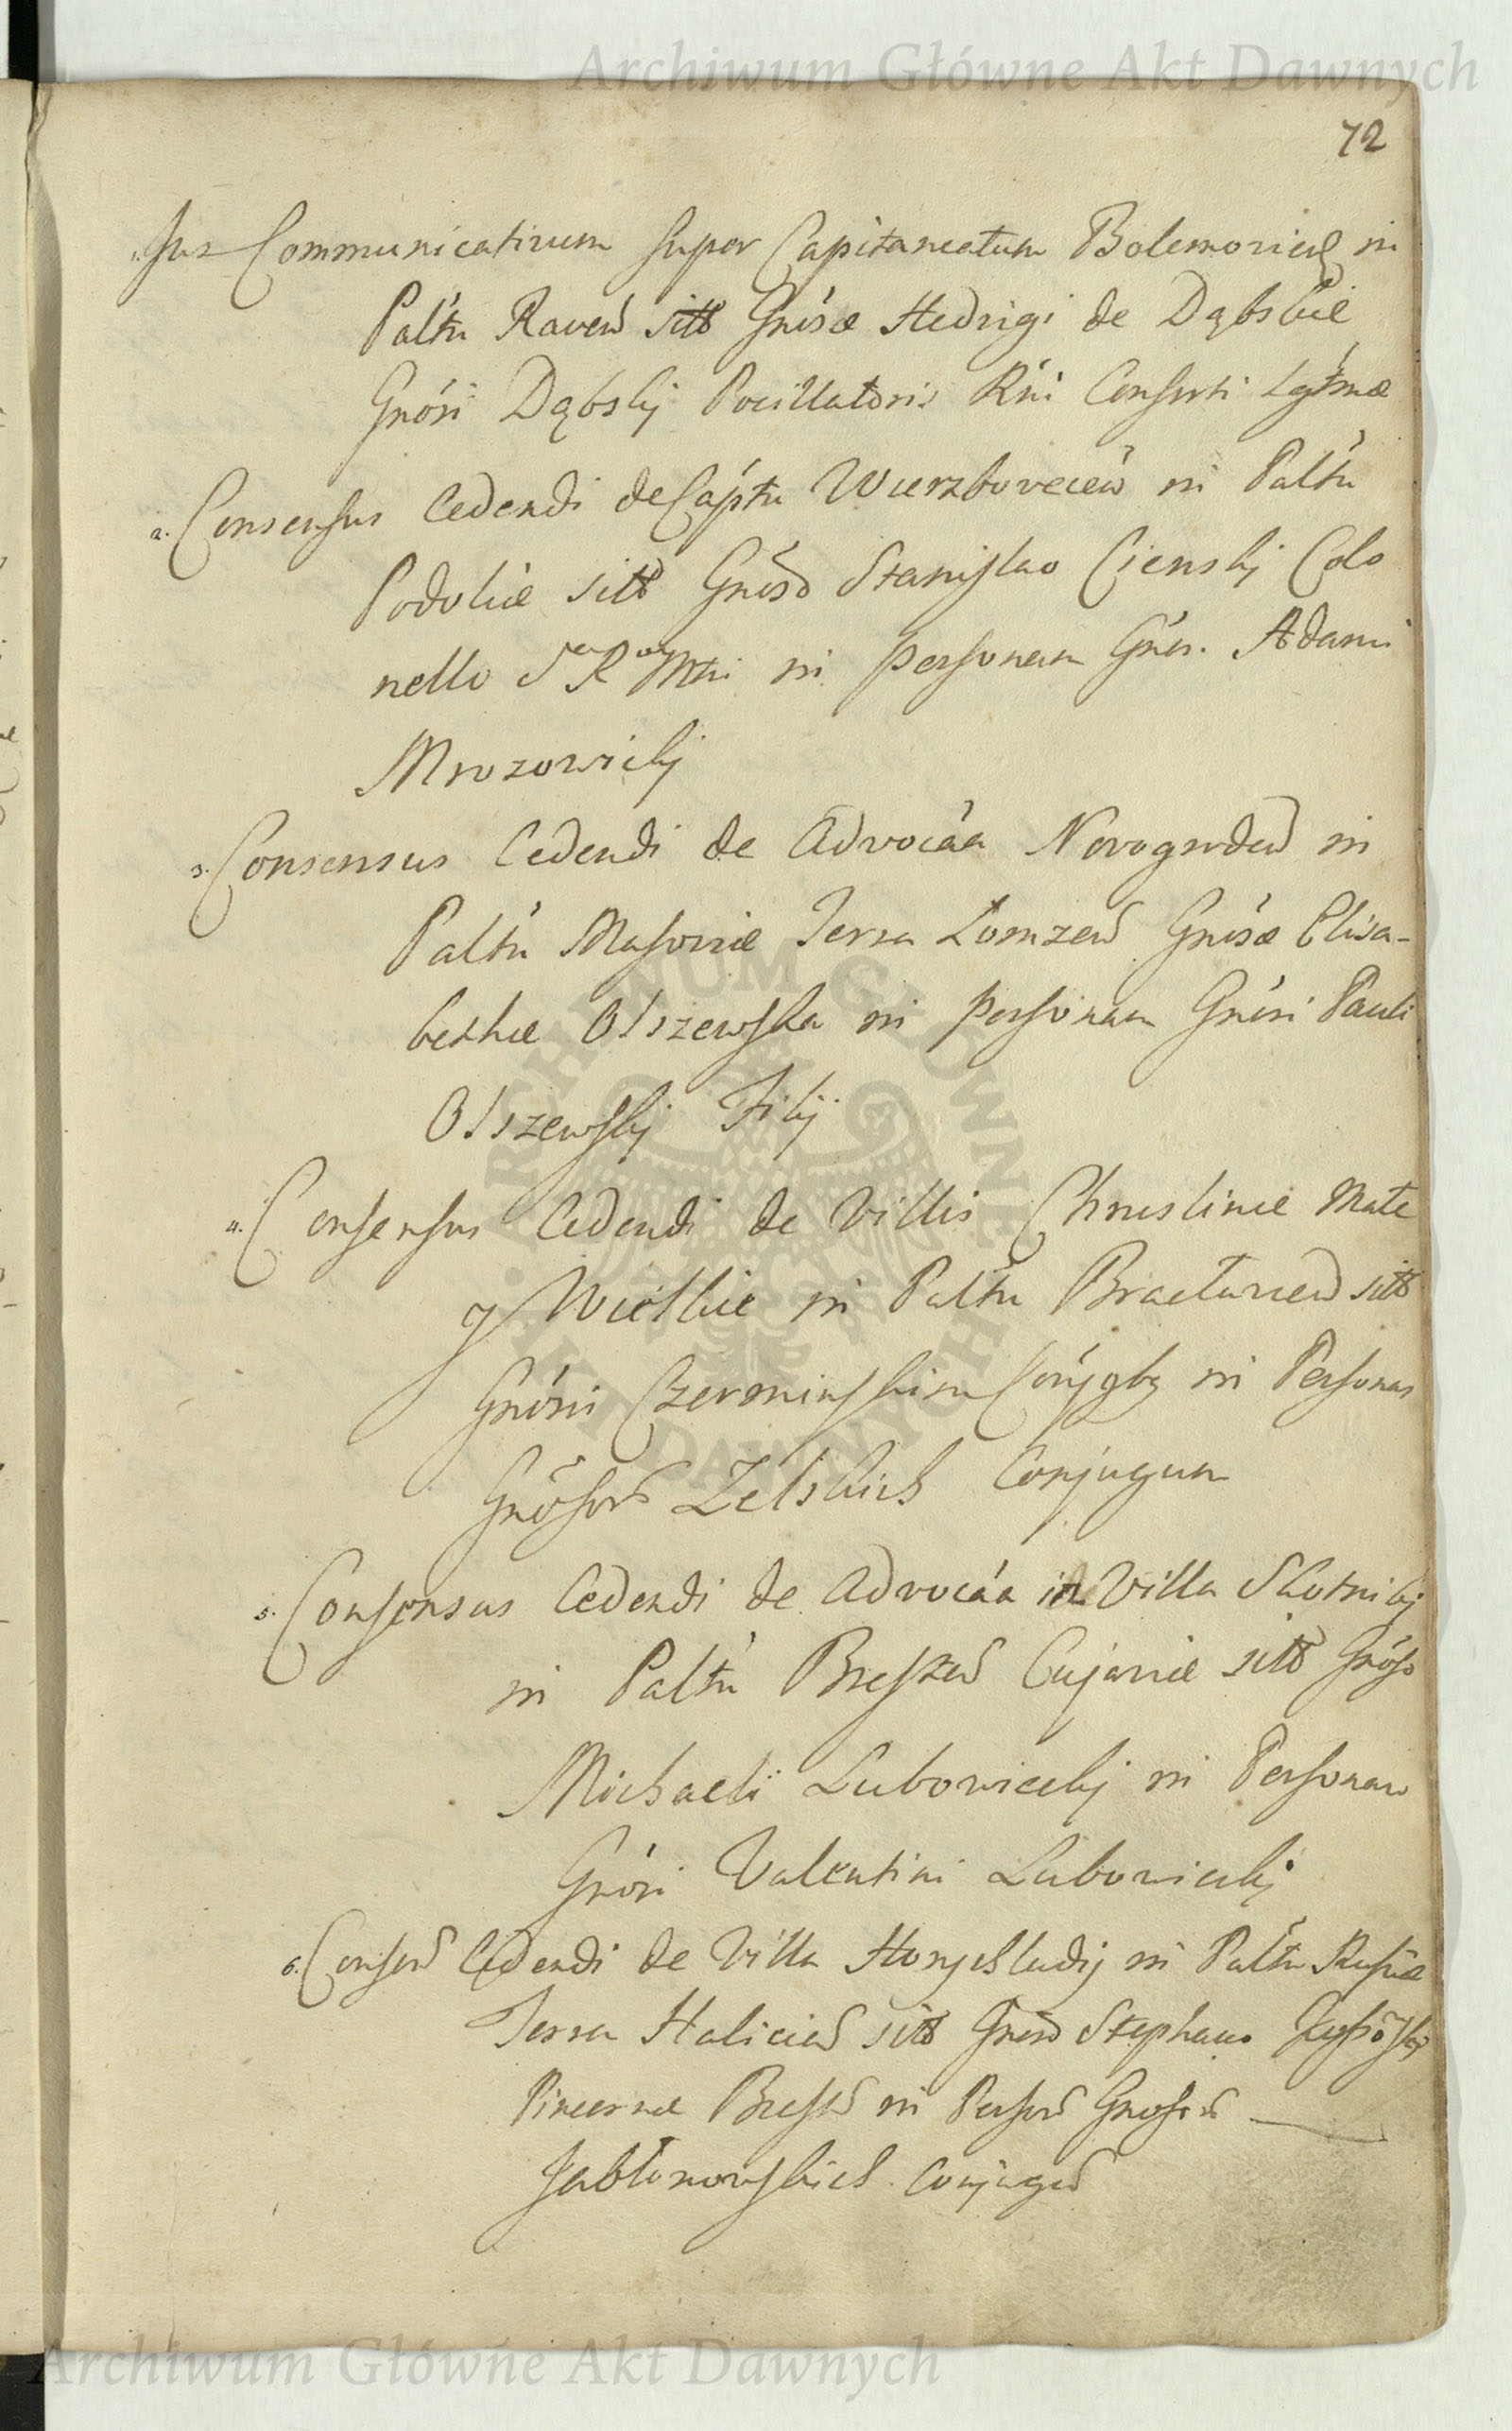 Archiwum Główne Akt Dawnych
72
1. Jus Communicativum super Capitaneatum Bolemoviens in
Paltu Ravens sitô Gnôsæ Hedvigi de Dąbskie
Gnôsi Dąbskj Pocillatoris Rni Consorti Lgtmæ
2. Consensus Cedendi de Captu Wierzboveciens in Paltu
Podoliæ sitô Gnôso Stanislao Cienskj Colo
nello S R Mtti in personam Gnôsi Adami
Mrozowickj
3. Consensus Cedendi de Advocáa Novogrodens in
Paltu Masoviæ Terra Lomzens Gnôsæ Elisa-
bethæ Olszewska in personam Gnôsi Pauli
Olszewskj Filij
4. Consensus Cedendi de Villis Chruslinie Małe
y Wielkie in Paltu Braclaviens sitô
Gnôsis Czerminskim Conjgbg in Personas
Gnôsor Zelskich Conjugum
5. Consensus Cedendi de Advocáa in Villa Skotnikj
in Paltu Brestens Cujaviæ sitô Gnôso
Michaeli Lubowieckj in Personam
Gnôsi Valentini Lubowieckj
6. Consens Cedendi de Villa in Paltu Russiæ
Terra Haliciens sitô Gnôso Stephano
Pincernæ Brests in Persons Gnosor
Jabłonowskich Conjugs
ARCHIWUM GŁÓWNE AKT DAWNYCH
Archiwum Główne Akt Dawnych